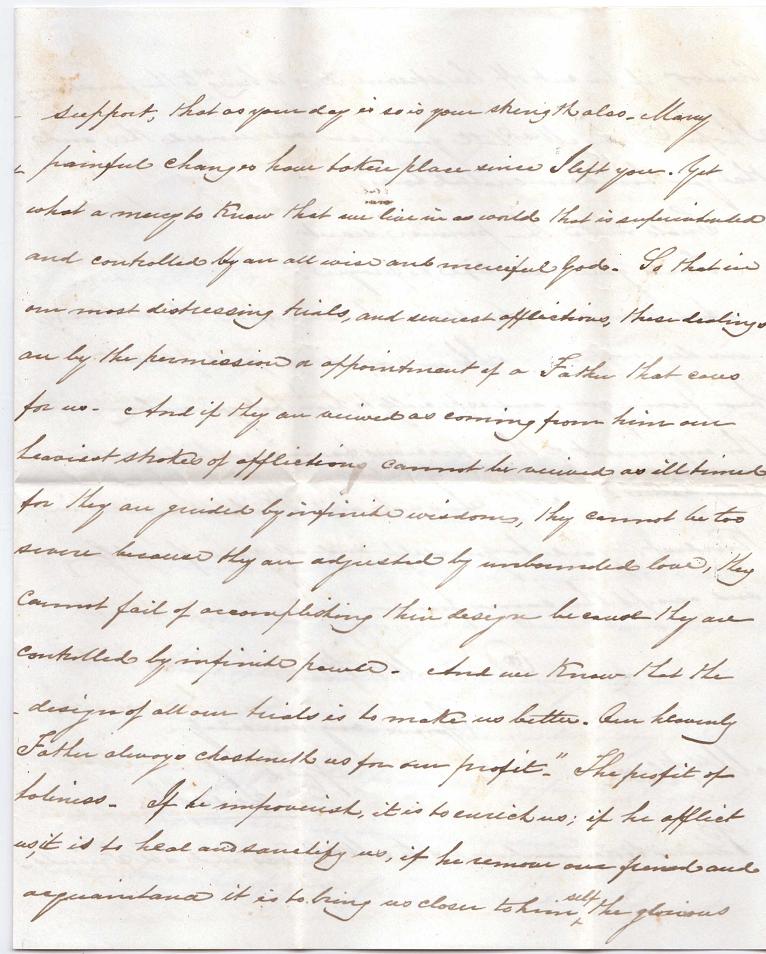 support, that as your day is so is your strength also - Many
painful changes have taken place since I left you. Yet
what a mercy to know that we live in a world that is superintended
and controlled by an all wise and merciful God. So that in
our most distressing trials, and severest afflictions, these dealings
are by the permission or appointment of a Father that cares
for us - And if they are veiwed as coming from him our
heaviest strokes of afflictions cannot be veiwed as ill timed
for they are guided by infinite wisdom, they cannot be too
severe because they are adjusted by unbounded love, they
cannot fail of accomplishing their design because they are
controlled by infinite power - And we know that the
design of all our trials is to make us better. Our heavenly
Father always chasteneth us for our profit-" The profit of
holiness - If he impoverish, it is to enrich us; if he afflict
us, it is to heal and sanctify us, if he remove our friend and
acquaintance it is to bring us closer to himself, the glorious